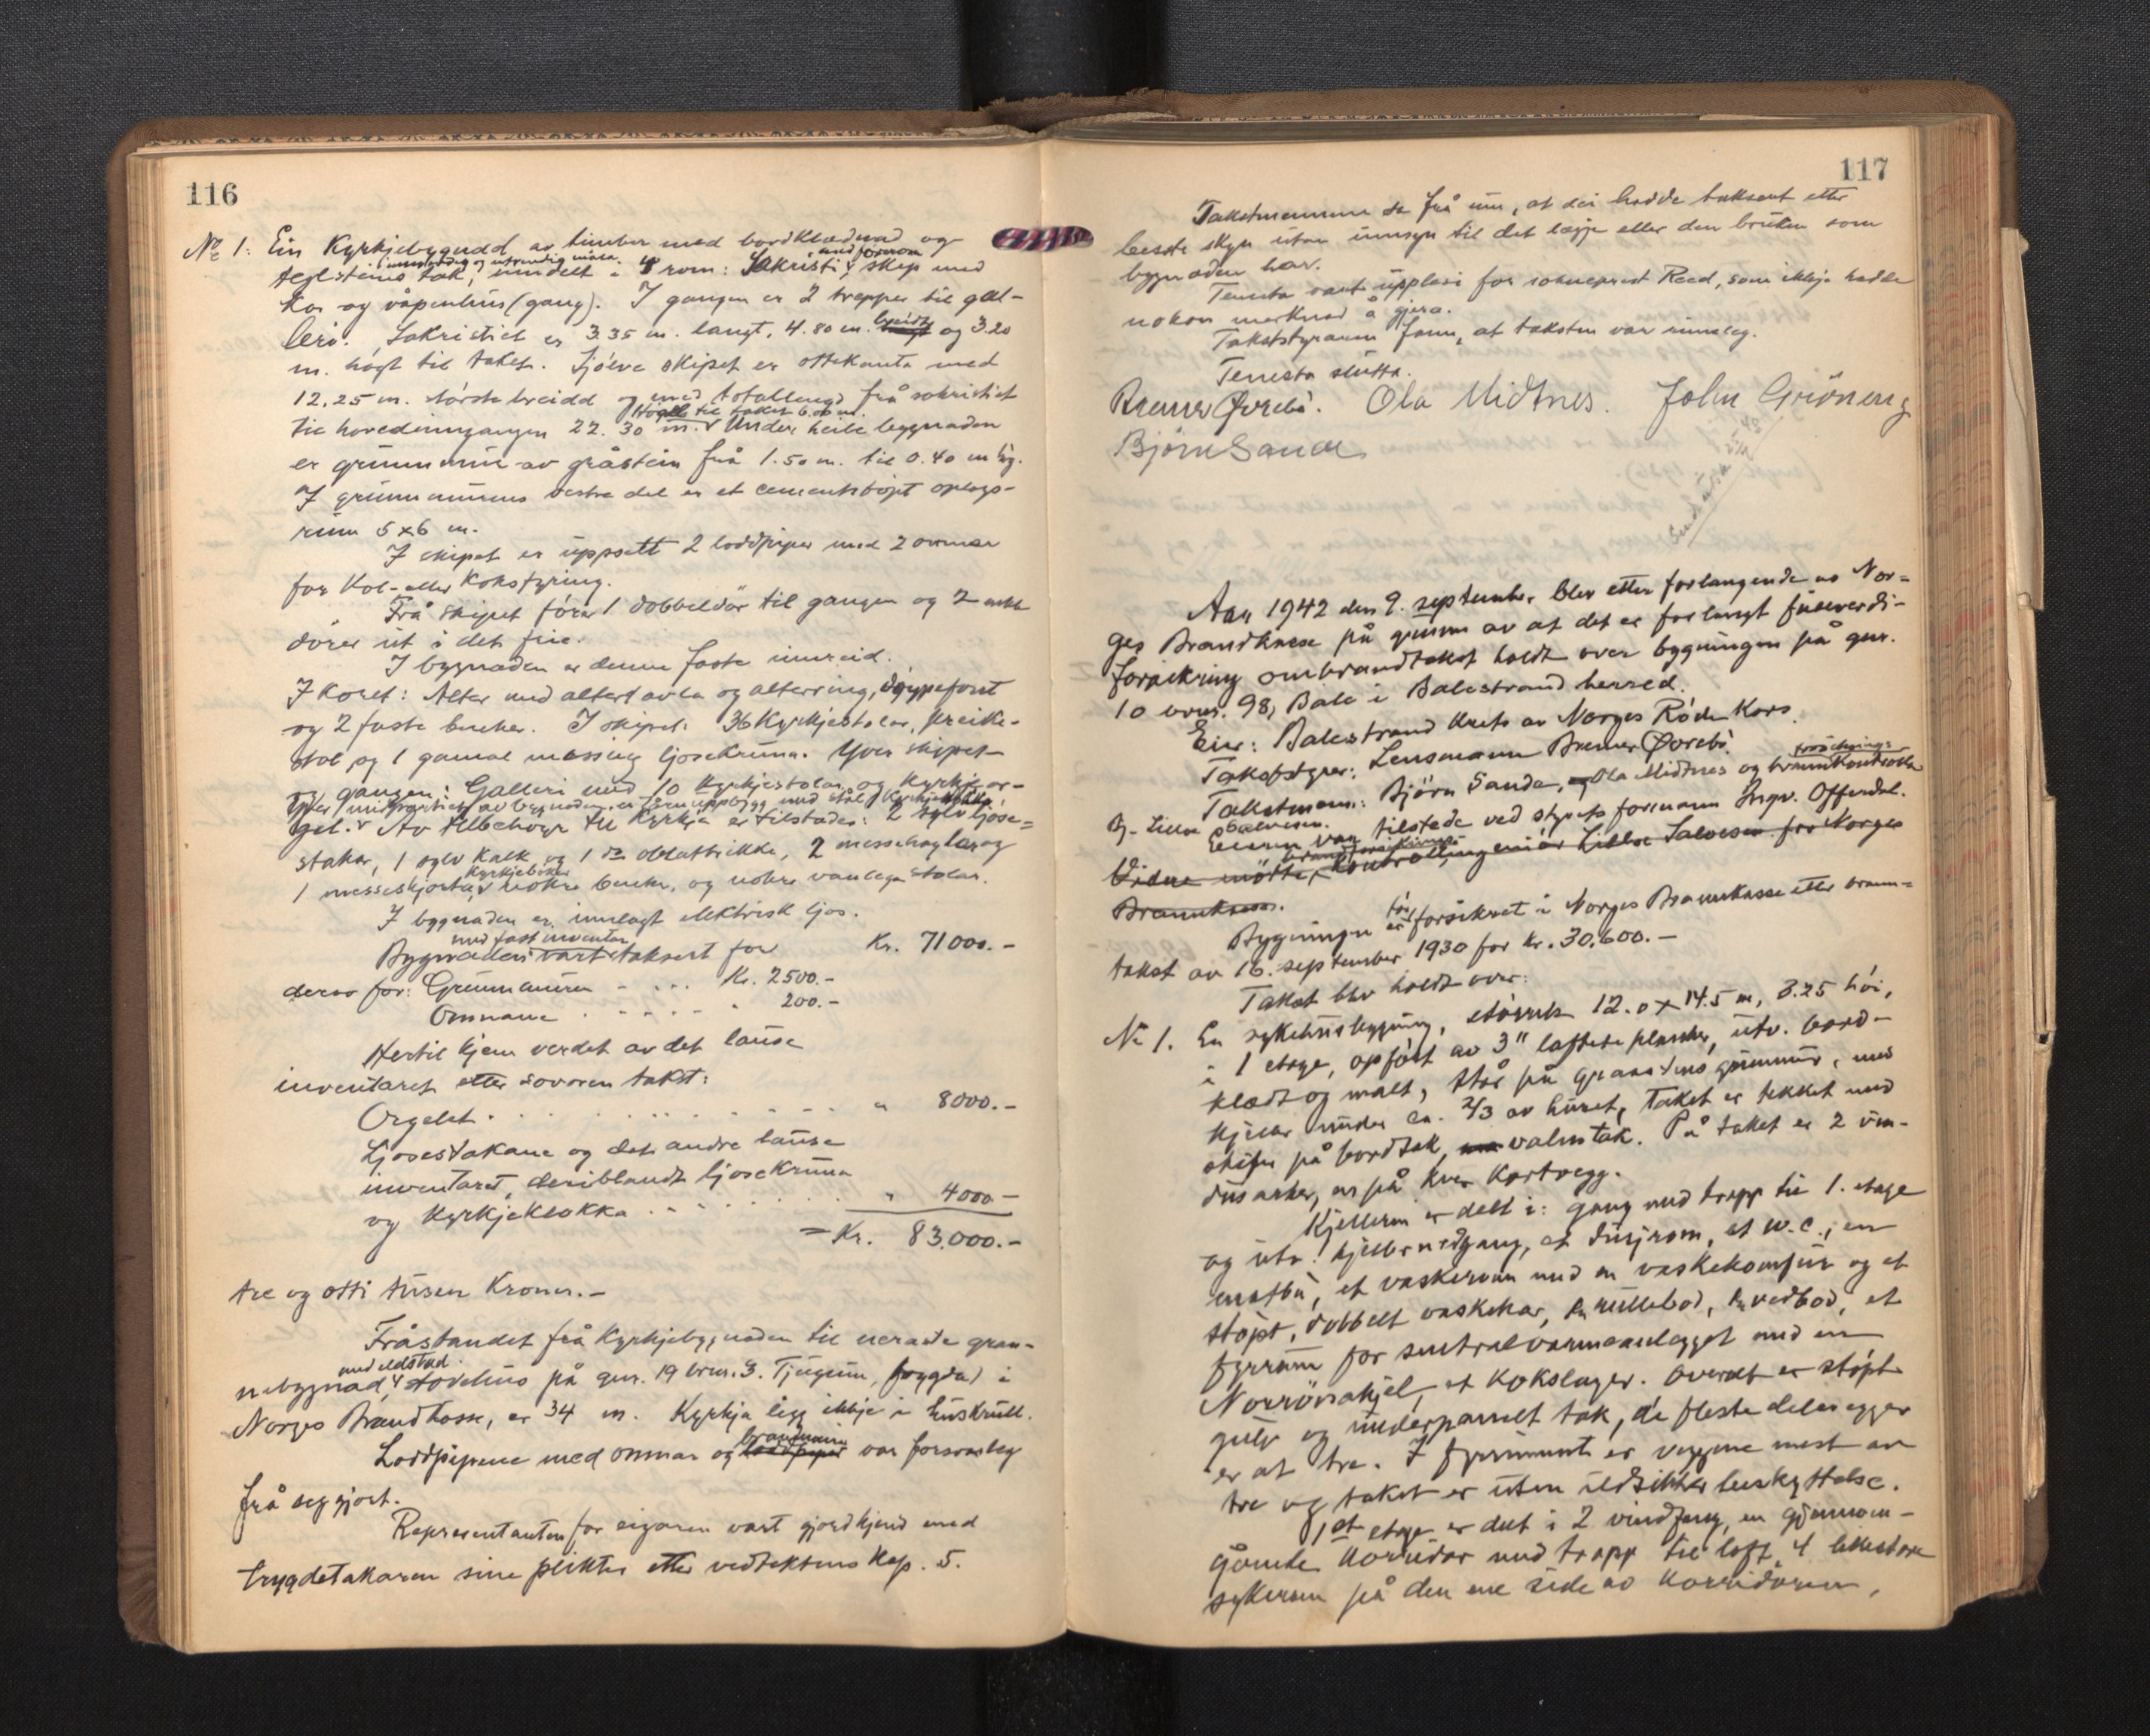 116
No 1. Ein Kyrkjebygnad av timber med bordklædnad og
teglsteins tak, innvendig og utvendig måla. inndelt i 4 rom: Sakristi med forrom, skip med
kor og våpenhus (gang). I gangen er 2 trapper til gal-
leri. Sakristiet er 3.35 m. langt, 4.80 m. breidt og 3.20
m. högt til taket. Sjölve skipet er ottekanta med
12.25 m. störste breidd og med totallengd frå sakristiet
til hovedinngangen 22.30 m. Högde til taket 6.00 m. Under heile bygnaden
er grunnmur av gråstein frå 1.50 m. til 0.40 m hög.
I grunnmurens vestre del er et cementstöpt oplags-
rum 5x6 m.
I skipet er uppsett 2 loddpiper med 2 omnar
for Kol- eller Koksfyring.
Frå skipet förer 1 dobbeldör til gangen og 2 enkle
dörer ut i det frie.
I bygnaden er denne faste innreid.
I Koret: Alter med altertavla og alterring, döypefont
og 2 faste benker. I skipet: 36 Kyrkjestolar, preike-
stol og 1 gamal messing ljosekruna. Yver skipet
og gangen: Galleri med 10 Kyrkjestolar og Kyrkjeor-
gel. Yver midtpartiet av bygnaden er tårn uppbygg med stål Kyrkjeklokke.
Av tilbehöyr til Kyrkja er tilstades: 2 sylv ljose-
stakar, 1 sylv Kalk og 1 do oblatörkke, 2 messehaglar og
1 messeskjorta, Kyrkjeböker nokre benker, og nokre vanlege stolar.
I bygnaden er innlagt elektrisk ljos.
Bygnaden med fast inventar vart taksert for Kr. 71000.-
derav for: Grunnmuren - . . . Kr. 2500.-
Omnane . . . . . " 200.-
Hertil kjem verdet av det lause
inventaret etter sovoren takst:
Orgelet . . . . . . . . . . " 8000.-
Ljosestakane og det andre lause
inventaret, deriblandt ljosekruna
og Kyrkjeklokka . . . . . . . " 4000-
= Kr. 83.000.-
tre og otti tusen Kroner.-
Fråstandet frå Kyrkjebygnaden til næraste gran-
nebygnad med eldstad, stovehus på gnr. 19 brnr. 3. Tjugum, trygda i
Norges Brandkasse, er 34 m. Kyrkja ligg ikkje i huskrull.
Loddpipene med omnar og brannmur loddpiper var forsvarleg
frå seg gjort.
Representanten for eigaren vart gjord kjend med
trygdetakaren sine plikter etter vedtektene Kap. 5.
117
Takstmennene sa frå um, at dei hadde taksert etter
beste skyn utan umsyn til det lægje eller den bruken som
bygnaden har.
Tenesta vart upplesi for sokneprest Reed, som ikkje hadde
nokon merknad å gjera.
Takststyraren fann, at taksten var rimeleg.
Tenesta slutta.
Bremer Øvrebö. Ola Midtnes. John Gröneng
Björn Sande
Aar 1942 den 9. september blev etter forlangende av Nor-
ges Brandkasse på grunn av at det er forlangt fuldverdi-
forsikring ombrandtakst holdt over bygningen på gnr.
10 brnr. 98, Bale i Balestrand herred.
Eier: Balestrand Krets av Norges Röde Kors.
Takstbstyrer: Lensmann Bremer Øvrebö.
Takstmenn: Björn Sande, og Ola Midtnes og forsikrings brannkontrollør
Bj. Lilloe Salvesen.
Eieren var tilstede ved styrets formann Ingv. Offerdal.
Videre mötte, brandforsikrings kontrollingeniör Lilloe Salvesen for Norges
Brannkasse.
Bygningen er för forsikret i Norges Brannkasse etter brann-
takst av 16. september 1930 for kr. 30.600.-
Takst blev holdt over:
No 1. En sykehusbygning, störrelse 12.0 x 14.5 m, 3.25 höi,
i 1 etage, opfört av 3" laftete planker, utv. bord-
klædt og malt, står på graastens grunnmur, med
kjeller under ca. 2/3 av huset, Taket er tekket med
skifer på bordtak, valmtak. På taket er 2 vin-
dusarker, en på hver Kortvegg.
Kjelleren er delt i: gang med trapp til 1. etage
og utv. kjellernedgang, et dusjrom, et W.C., en
matbu, et vaskerum med en vaskekomfur og et
stöpt, dobbelt vaskekar, en rullebod, en vedbod, et
fyrrum for sentralvarmeanlegget med en
Norrönakjel, et Kokslager. Overalt er stöpt
gulv og underpanelt tak, de fleste delevegger
er at tre. I fyrrummet er veggene mest av
tre og taket er uten ildsikker beskyttelse.
1ste etage er delt i 2 vindfang, en gjennom-
gående Korridor med trapp til loft, 4 likestore
sykerum på den ene side av Korridoren,